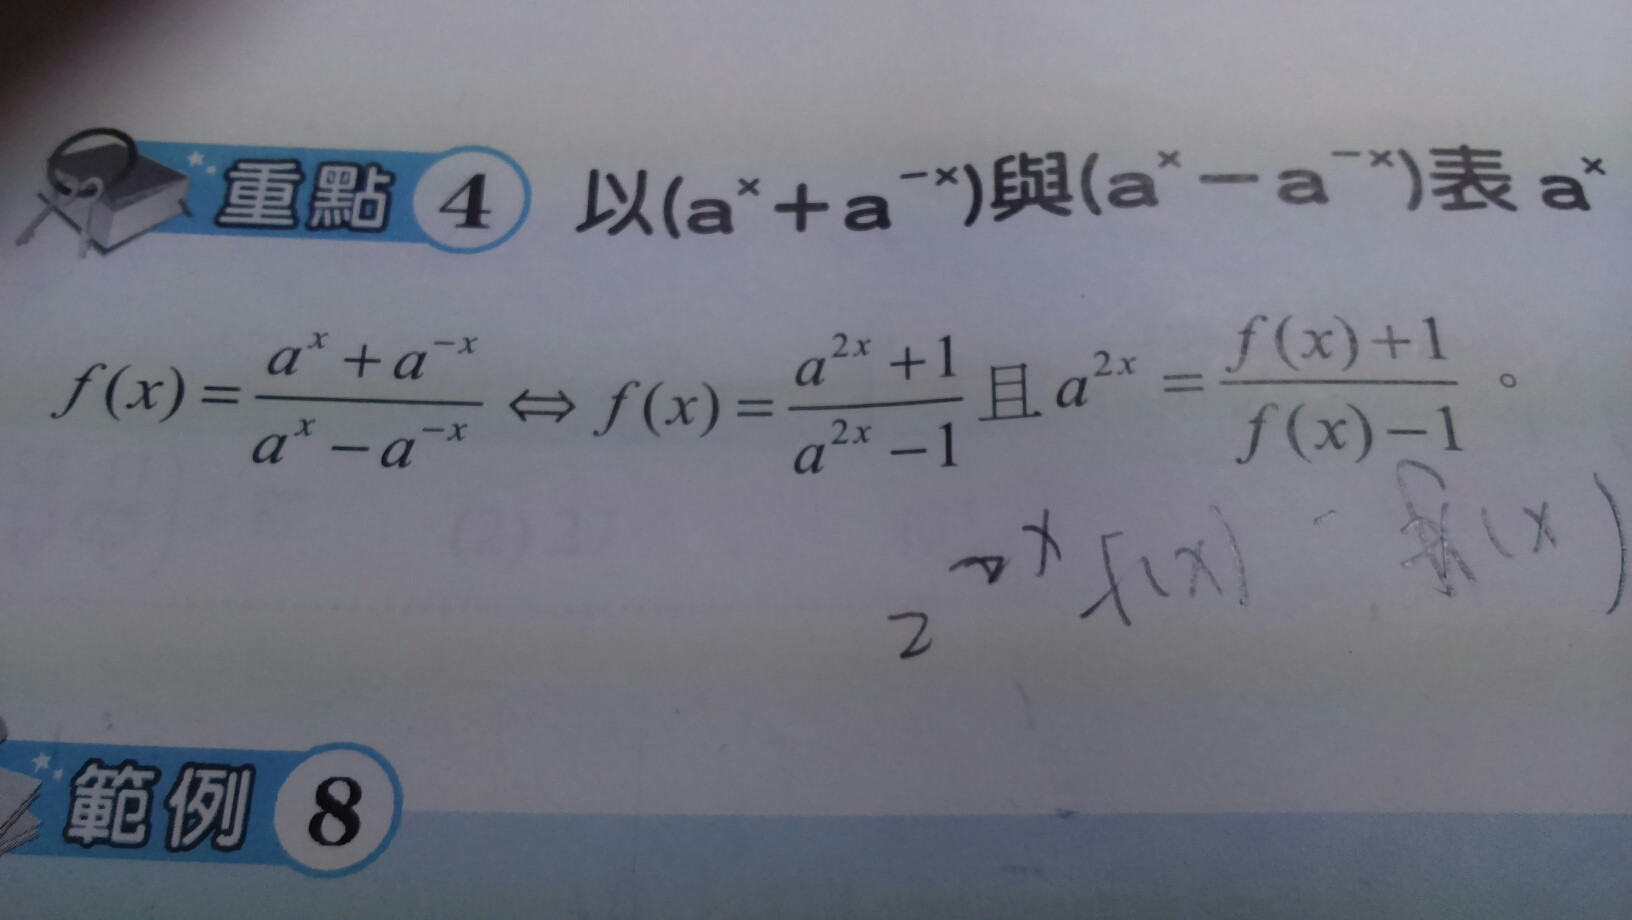 重點 4 以(aˣ+a⁻ˣ)與(aˣ-a⁻ˣ)表 aˣ
f(x)=(aˣ+a⁻ˣ)/(aˣ-a⁻ˣ)⇔f(x)=(a²ˣ+1)/(a²ˣ-1)且a²ˣ=(f(x)+1)/(f(x)-1)。
範例 8